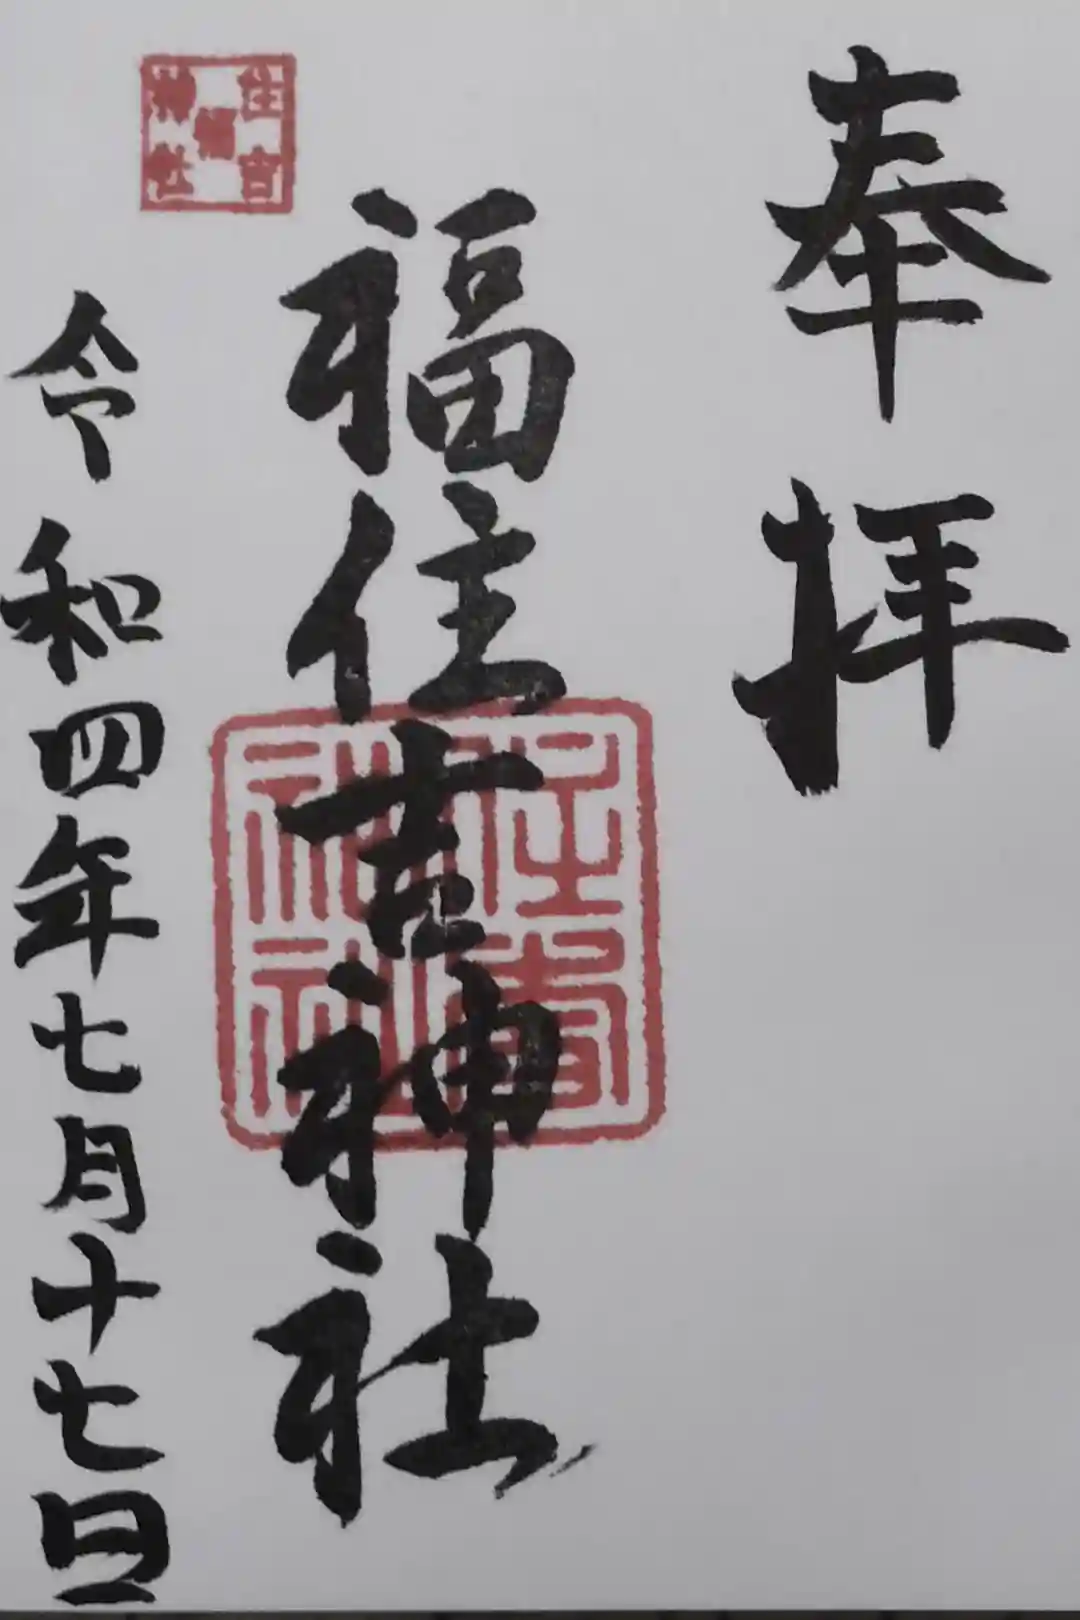 奉拝
福住吉神社
住吉
福
神社
住吉神社
令和四年七月十七日